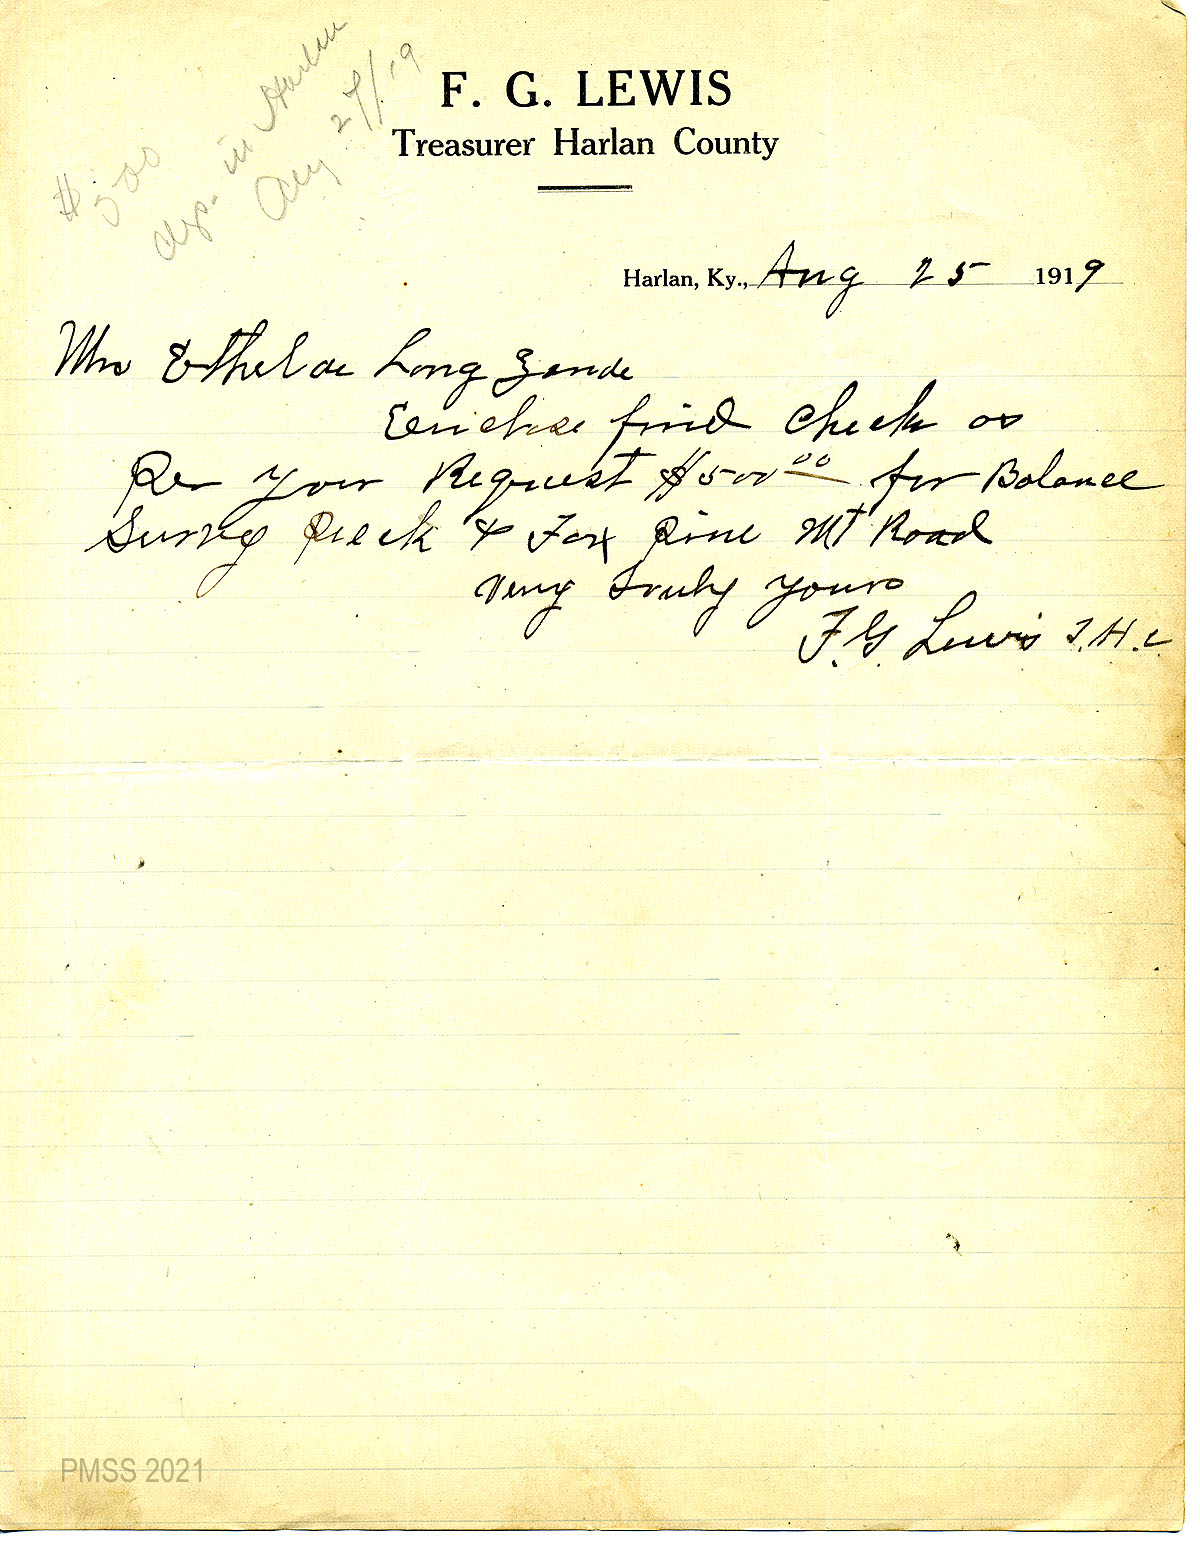 $500
dep. in Harlan
Aug 27/19
F. G. LEWIS
Treasurer Harlan County
Harlan, Ky., Aug 25 1919
Mrs Ethel de Long Zande
Enclose find Check as
Per your Request $500.00 for Balance
Survey Creek & Fox Pine Mt Road
Very Truly yours
F.G. Lewis T.H.C
PMSS 2021